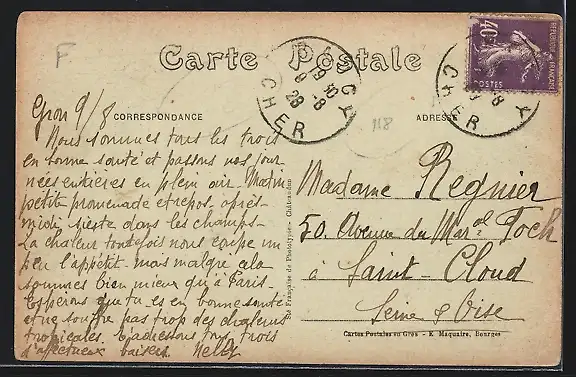 F
Carte Postale
CORRESPONDANCE
ADRESSE
40c
REPUBLIQUE FRANÇAISE
POSTES
CHER
19 30
9 -8
28
CHER
118
Gron 9/8
Nous sommes tous les trois
en bonne santé et passons nos jour
nées entières en plein air. Matin
petite promenade et repos, après-
midi sieste dans les champs-
La chaleur toutefois nous coupe un
peu l'appétit. mais malgré cela
sommes bien mieux qu'à Paris.
Espérons que tu es en bonne santé
et ne souffre pas trop des chaleurs
tropicales. T'adressons tous trois
d'affectueux baisers. Nelly
Sté Française de Phototypie - Châteaudun
Madame Regnier
50. Avenue du Maral Foch
à Saint-Cloud
Seine & Oise
Cartes Postales en Gros - E. Maquaire, Bourges